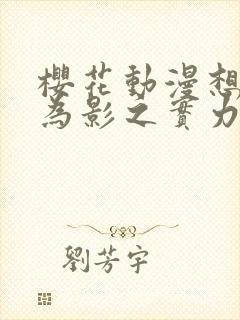 櫻花動漫想
為影之實力
劉芳宇